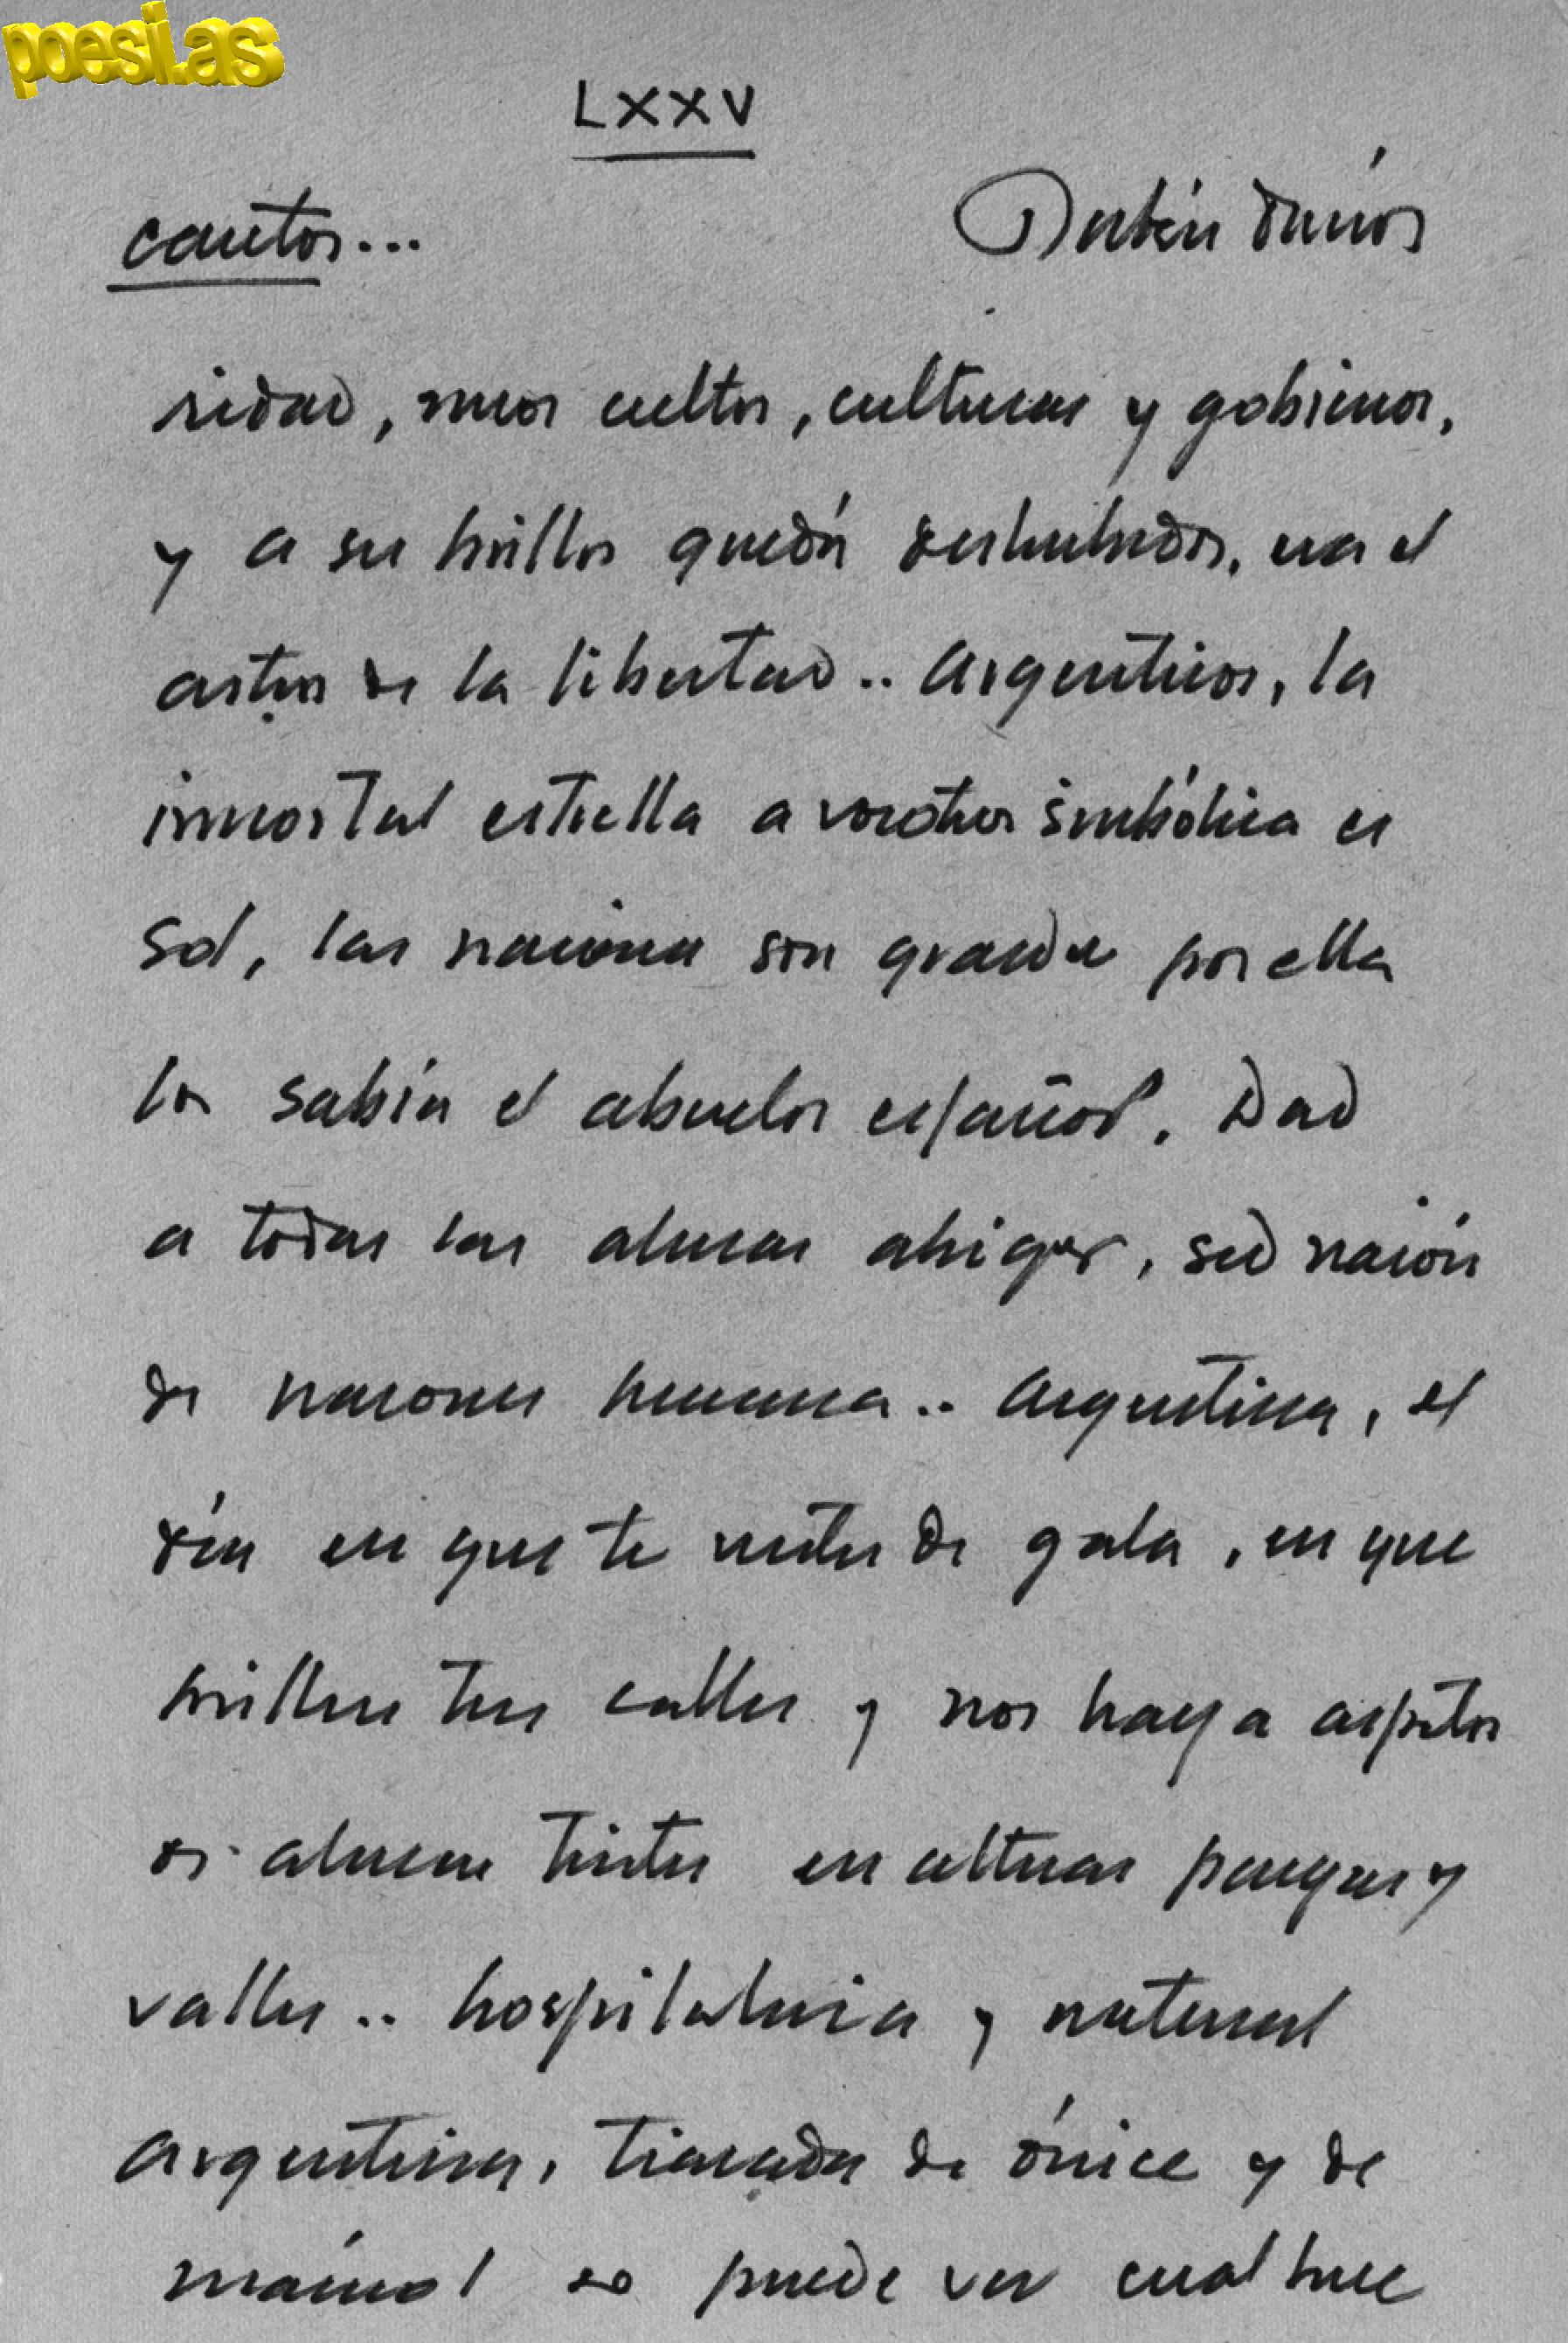 poesi.as
LXXV
cantos... Rubén Darío
ridad, cultos, culturas y gobiernos,
y a su brillo quedó deslumbrado, era el
astro de la libertad.. Argentinos, la
inmortal estrella a vosotros simbólica es
Sol, las naciones son grandes por ella
lo sabía el abuelo español. Dad
a todas las almas abrigo, sed nación
de naciones hermana.. Argentina, el
día en que te vistes de gala, en que
brillen tus calles y no haya aspectos
de almas tristes en alturas pampas y
valles.. hospitalaria y maternal
Argentina, tiarada de ónice y de
mármol se puede ver cual